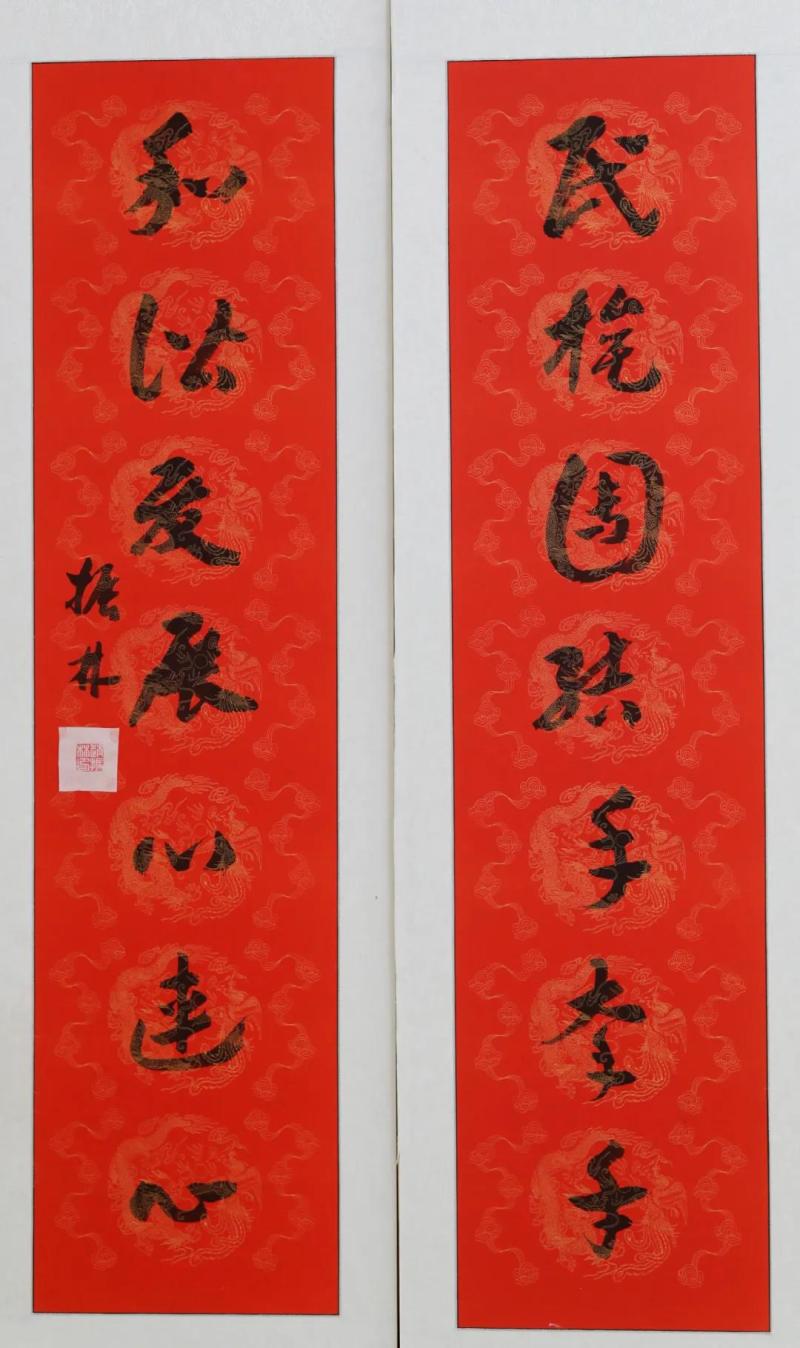 民族团结手牵手
和谐发展心连心
振林